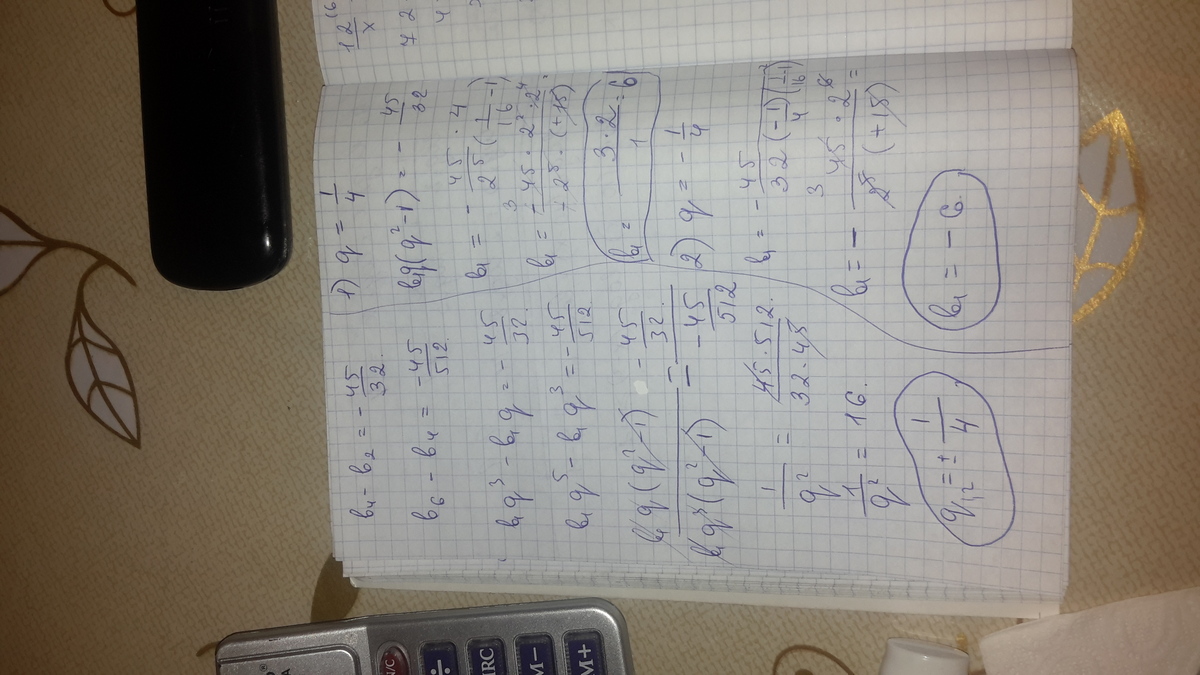 b₄ - b₂ = - 45/32.
b₆ - b₄ = - 45/512.
b₁q³ - b₁q = - 45/32.
b₁q⁵ - b₁q³ = - 45/512.
b₁q(q²-1) / b₁q³(q²-1) = - 45/32. / - 45/512
1/q² = 45·512. / 32·45
1/q² = 16.
q₁,₂ = ± 1/4
1) q = 1/4
b₁q(q²-1) = - 45/32
b₁ = - 45·4 / 2⁵(1/16 -1)
b₁ = - 45·2²·2⁴ / - 2⁵·(+15) =
3
b₁ = 3·2/1 = 6
2) q = - 1/4
b₁ = - 45 / 32(-1/4)(1/16 -1)
3
b₁ = - 45·2⁶ / 2⁵(+15) =
b₁ = - 6.
12
x
7 2
4
÷
MRC
M-
M+